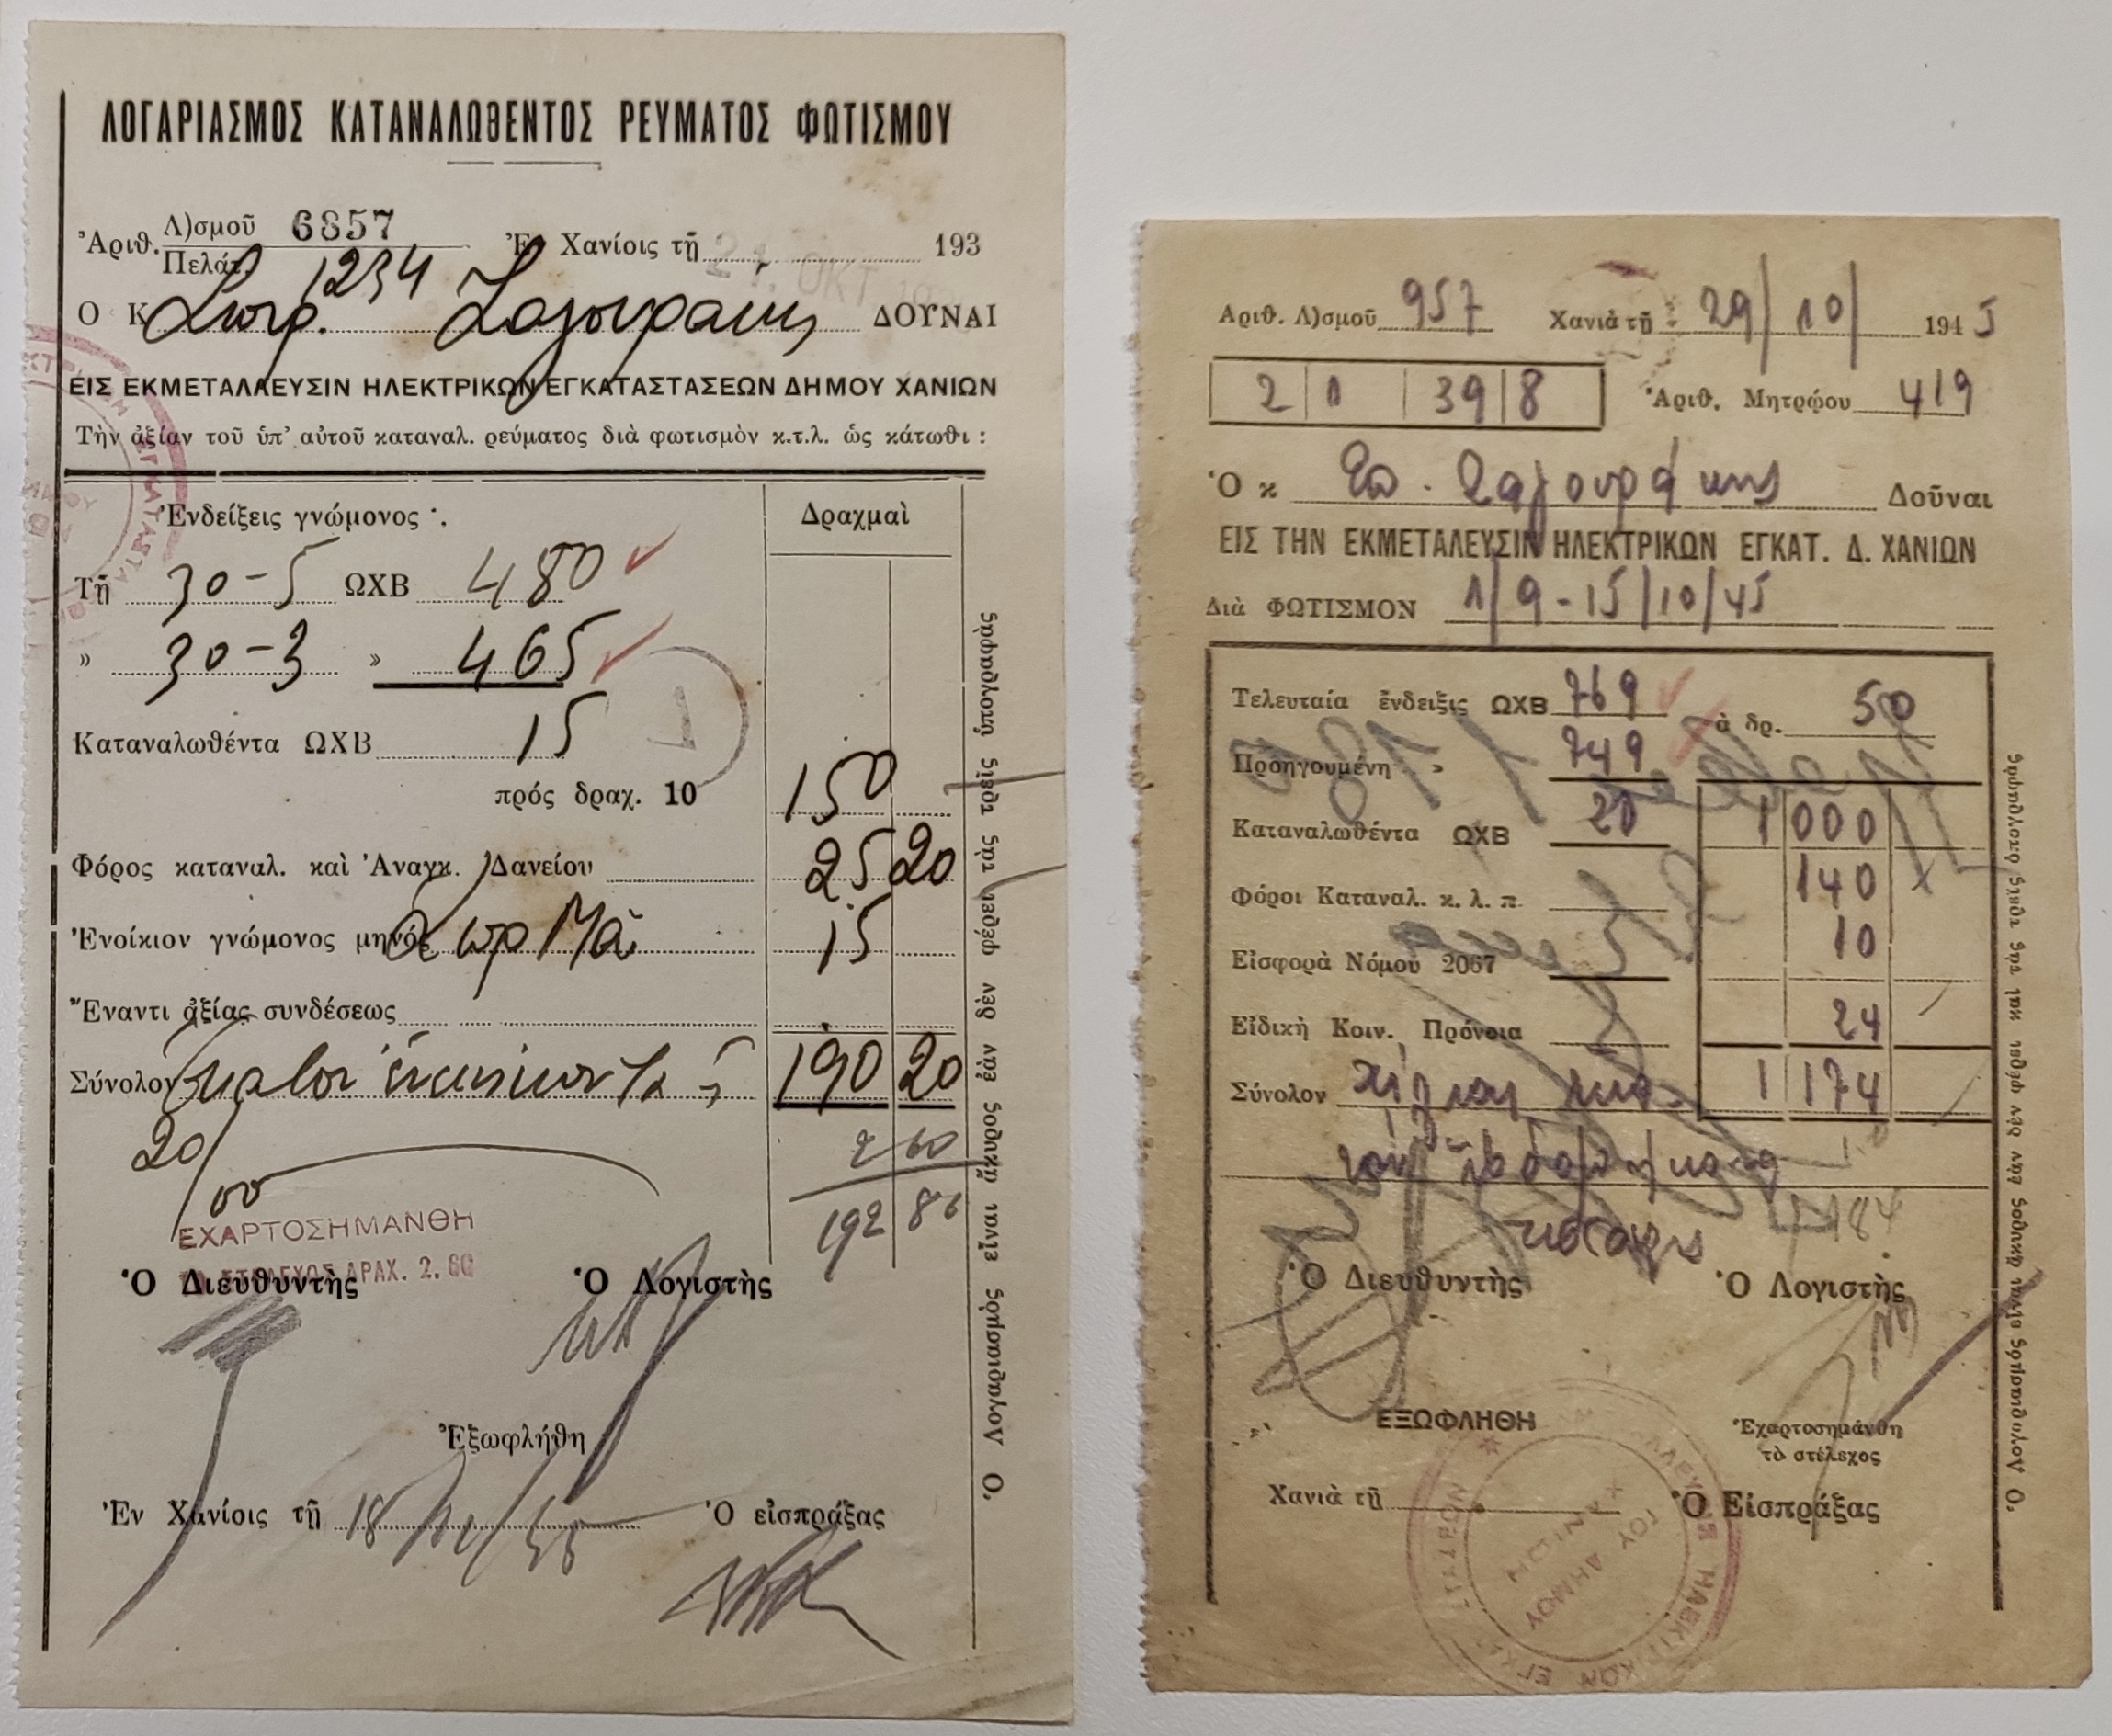 ΛΟΓΑΡΙΑΣΜΟΣ ΚΑΤΑΝΑΛΩΘΕΝΤΟΣ ΡΕΥΜΑΤΟΣ ΦΩΤΙΣΜΟΥ
Ἀριθ. Λ)σμοῦ 6857
Πελάτ. 1234
Ἐν Χανίοις τῇ 21. ΟΚΤ 193
Ο Κ Σπυρ. Ζαγουράκης ΔΟΥΝΑΙ
ΕΙΣ ΕΚΜΕΤΑΛΛΕΥΣΙΝ ΗΛΕΚΤΡΙΚΩΝ ΕΓΚΑΤΑΣΤΑΣΕΩΝ ΔΗΜΟΥ ΧΑΝΙΩΝ
Τὴν ἀξίαν τοῦ ὑπ' αὐτοῦ καταναλ. ρεύματος διὰ φωτισμὸν κ.τ.λ. ὡς κάτωθι :
Ἐνδείξεις γνώμονος : Δραχμαὶ
Τῇ 30-5 ΩΧΒ 480
» 30-3 » 465
Καταναλωθέντα ΩΧΒ 15
πρός δραχ. 10 150
Φόρος καταναλ. καὶ Ἀναγκ. Δανείου 25 20
Ἐνοίκιον γνώμονος μηνός 15
Ἔναντι ἀξίας συνδέσεως
Σύνολον ἑκατὸν ἐνενήκοντα 190 20
20/οο
2 60
192 80
ΕΧΑΡΤΟΣΗΜΑΝΘΗ
ΤΟ ΣΤΕΛΕΧΟΣ ΔΡΑΧ. 2.60
Ὁ Διευθυντὴς Ὁ Λογιστὴς
Ἐξωφλήθη
Ἐν Χανίοις τῇ 18 Ὁ εἰσπράξας
Ὁ Λογαριασμὸς εἶναι ἄκυρος ἐὰν δὲν φέρει τὰς τρεῖς ὑπογραφὰς
Αριθ. Λ)σμοῦ 957 Χανιὰ τῇ 29/10/ 1945
2 1 39 8 Ἀριθ. Μητρῴου 419
Ὁ κ Σπ. Ζαγουράκης Δοῦναι
ΕΙΣ ΤΗΝ ΕΚΜΕΤΑΛΕΥΣΙΝ ΗΛΕΚΤΡΙΚΩΝ ΕΓΚΑΤ. Δ. ΧΑΝΙΩΝ
Διὰ ΦΩΤΙΣΜΟΝ 1/9-15/10/45
Τελευταία ἔνδειξις ΩΧΒ 769 ἀ δρ. 50
Προηγουμένη » 749
Καταναλωθέντα ΩΧΒ 20 1 000
Φόροι Καταναλ. κ. λ. π. 140
Εἰσφορὰ Νόμου 2067 10
Εἰδικὴ Κοιν. Πρόνοια 24
Σύνολον χίλιαι ἑκα- 1 174
τόν ἑβδομήκοντα
τέσσαρες
1184
Ὁ Διευθυντὴς Ὁ Λογιστὴς
ΕΞΩΦΛΗΘΗ Ἐχαρτοσημάνθη
τὸ στέλεχος
Χανιὰ τῇ Ὁ Εἰσπράξας
ΤΟΥ ΔΗΜΟΥ
ΧΑΝΙΩΝ
Ὁ Λογαριασμὸς εἶναι ἄκυρος ἐὰν δὲν φέρει τὰς τρεῖς ὑπογραφάς